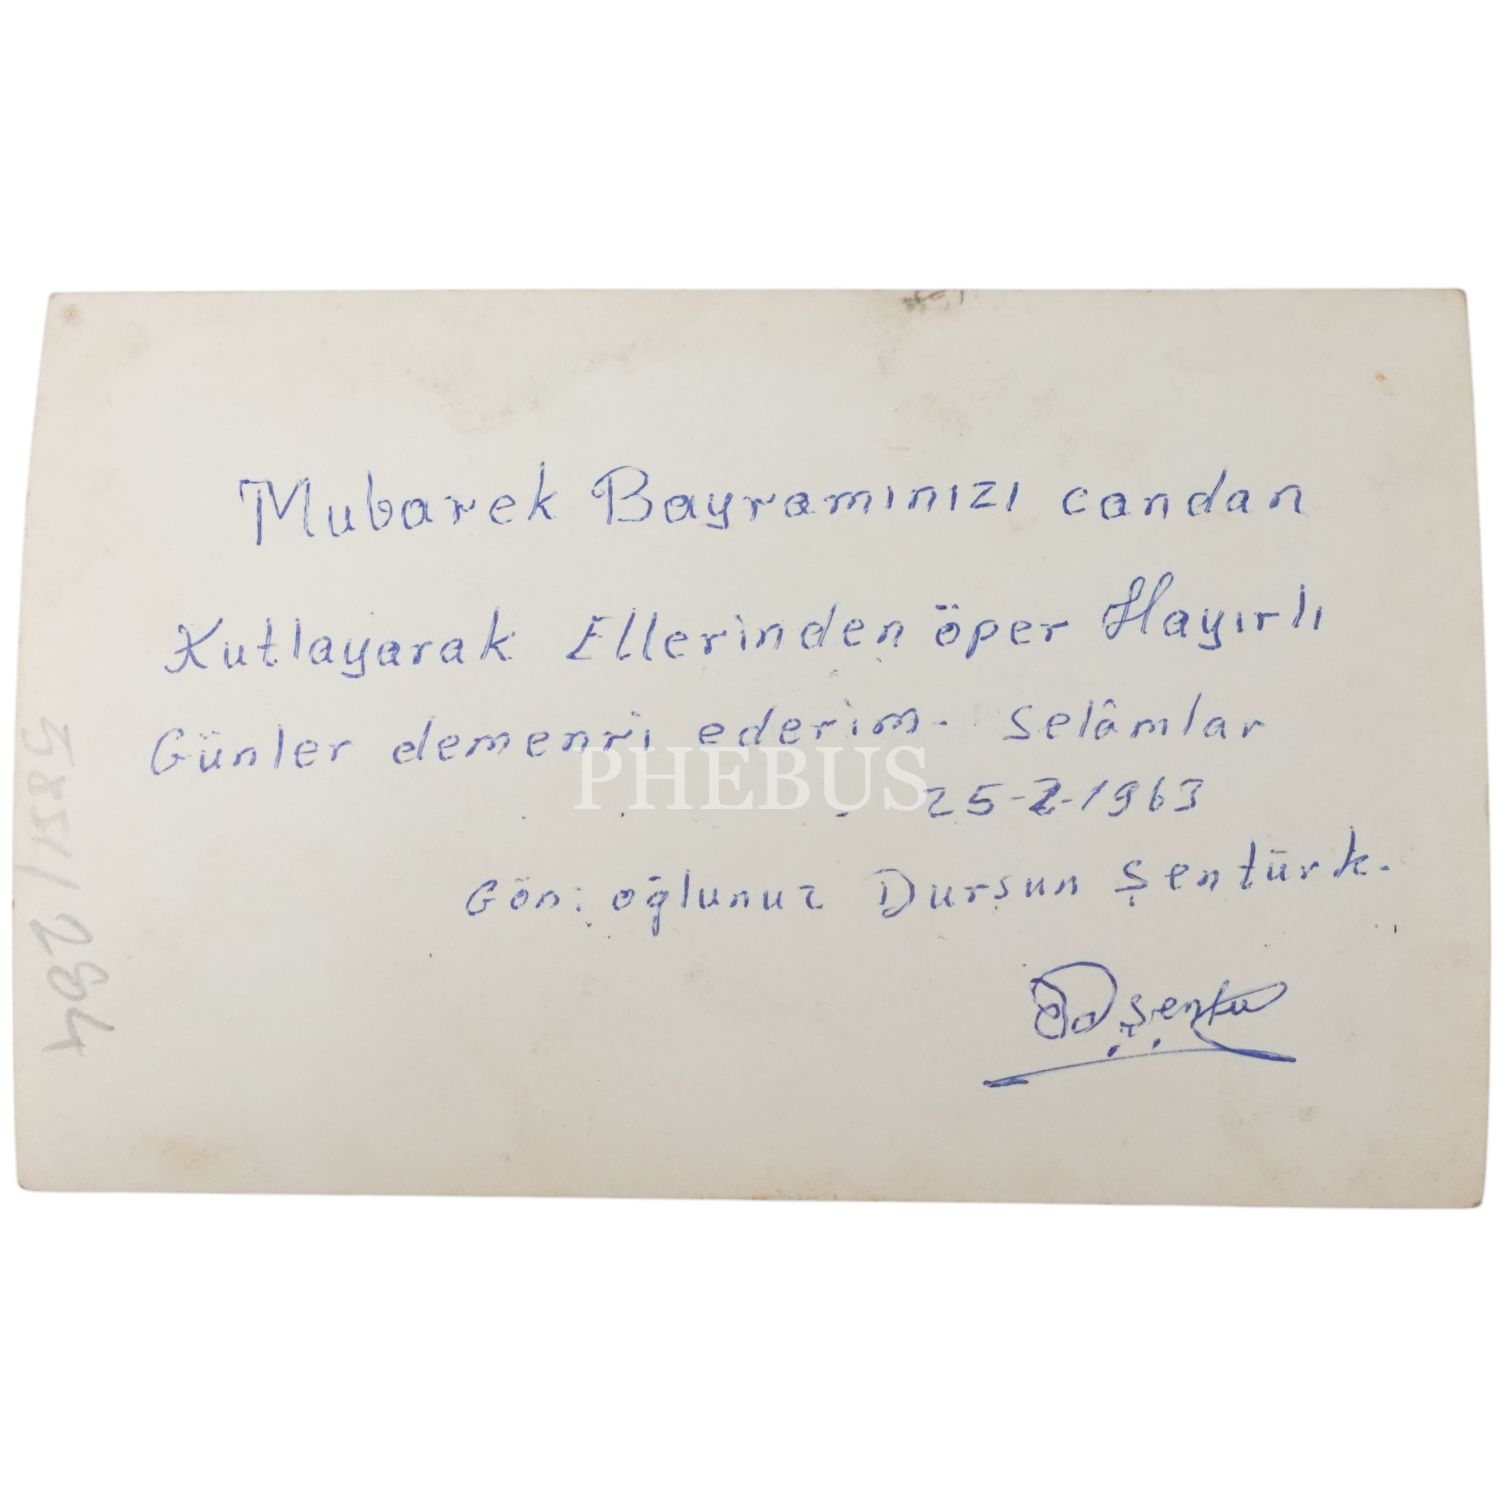 Mubarek Bayramınızı candan
Kutlayarak Ellerinden öper Hayırlı
Günler demenri ederim. Selâmlar
25-2-1963
Gön: oğlunuz Dursun Şentürk.
PHEBUS